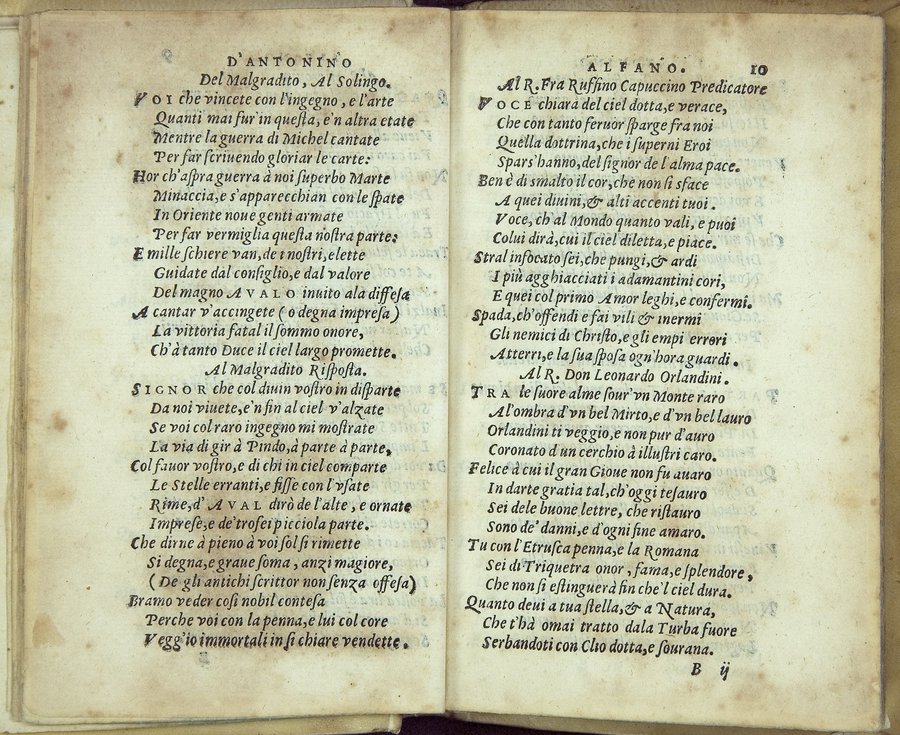 D'ANTONINO
Del Malgradito, Al Solingo.
VOI che vincete con l'ingegno, e l'arte
Quanti mai fur' in questa, e'n altra etate
Mentre la guerra di Michel cantate
Per far scriuendo gloriar le carte:
Hor ch'aspra guerra à noi superbo Marte
Minaccia, e s'apparecchian con le spate
In Oriente noue genti armate
Per far vermiglia questa nostra parte:
E mille schiere van, de i nostri, elette
Guidate dal consiglio, e dal valore
Del magno AVALO inuito ala diffesa
A cantar v'accingete (o degna impresa)
La vittoria fatal il sommo onore,
Ch'à tanto Duce il ciel largo promette.
Al Malgradito Risposta.
SIGNOR che col diuin vostro in disparte
Da noi viuete, e'n fin al ciel v'alzate
Se voi col raro ingegno mi mostrate
La via di gir à Pindo, à parte à parte,
Col fauor vostro, e di chi in ciel comparte
Le Stelle erranti, e fisse con l'vsate
Rime, d'AVAL dirò de l'alte, e ornate
Imprese, e de' trofei picciola parte.
Che dirne à pieno à voi sol si rimette
Si degna, e graue soma, anzi magiore,
(De gli antichi scrittor non senza offesa)
Bramo veder cosi nobil contesa
Perche voi con la penna, e lui col core
Vegg'io immortali in si chiare vendette.
ALFANO. 10
Al R. Fra Ruffino Capuccino Predicatore
VOCE chiara del ciel dotta, e verace,
Che con tanto feruor sparge fra noi
Quella dottrina, che i superni Eroi
Spars'hanno, del signor de l'alma pace.
Ben è di smalto il cor, che non si sface
A quei diuini, & alti accenti tuoi.
Voce, ch'al Mondo quanto vali, e puoi
Colui dirà, cui il ciel diletta, e piace.
Stral infocato sei, che pungi, & ardi
I più agghiacciati i adamantini cori,
E quei col primo Amor leghi, e confermi.
Spada, ch'offendi e fai vili & inermi
Gli nemici di Christo, e gli empi errori
Atterri, e la sua sposa ogn'hora guardi.
Al R. Don Leonardo Orlandini.
TRA le suore alme sour'vn Monte raro
Al'ombra d'vn bel Mirto, e d'vn bel lauro
Orlandini ti veggio, e non pur d'auro
Coronato d'un cerchio à illustri caro.
Felice à cui il gran Gioue non fu auaro
In darte gratia tal, ch'oggi tesauro
Sei dele buone lettre, che ristauro
Sono de' danni, e d'ogni fine amaro.
Tu con l'Etrusca penna, e la Romana
Sei di Triquetra onor, fama, e splendore,
Che non si estinguerà fin che'l ciel dura.
Quanto deui a tua stella, & a Natura,
Che t'hà omai tratto dala Turba fuore
Serbandoti con Clio dotta, e sourana.
B ij